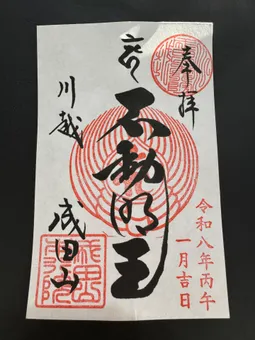 奉拝
不動明王
川越
成田山
令和八年丙午
一月吉日